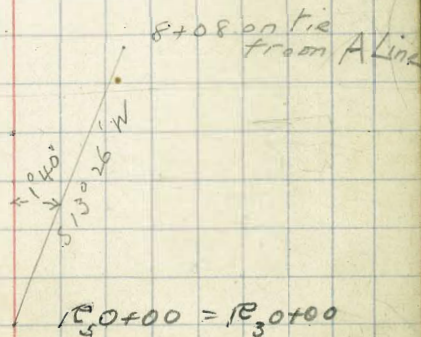 8+08 on tie
from A Line
1°40'
S 13° 26' W
R5 0+00 = R3 0+00